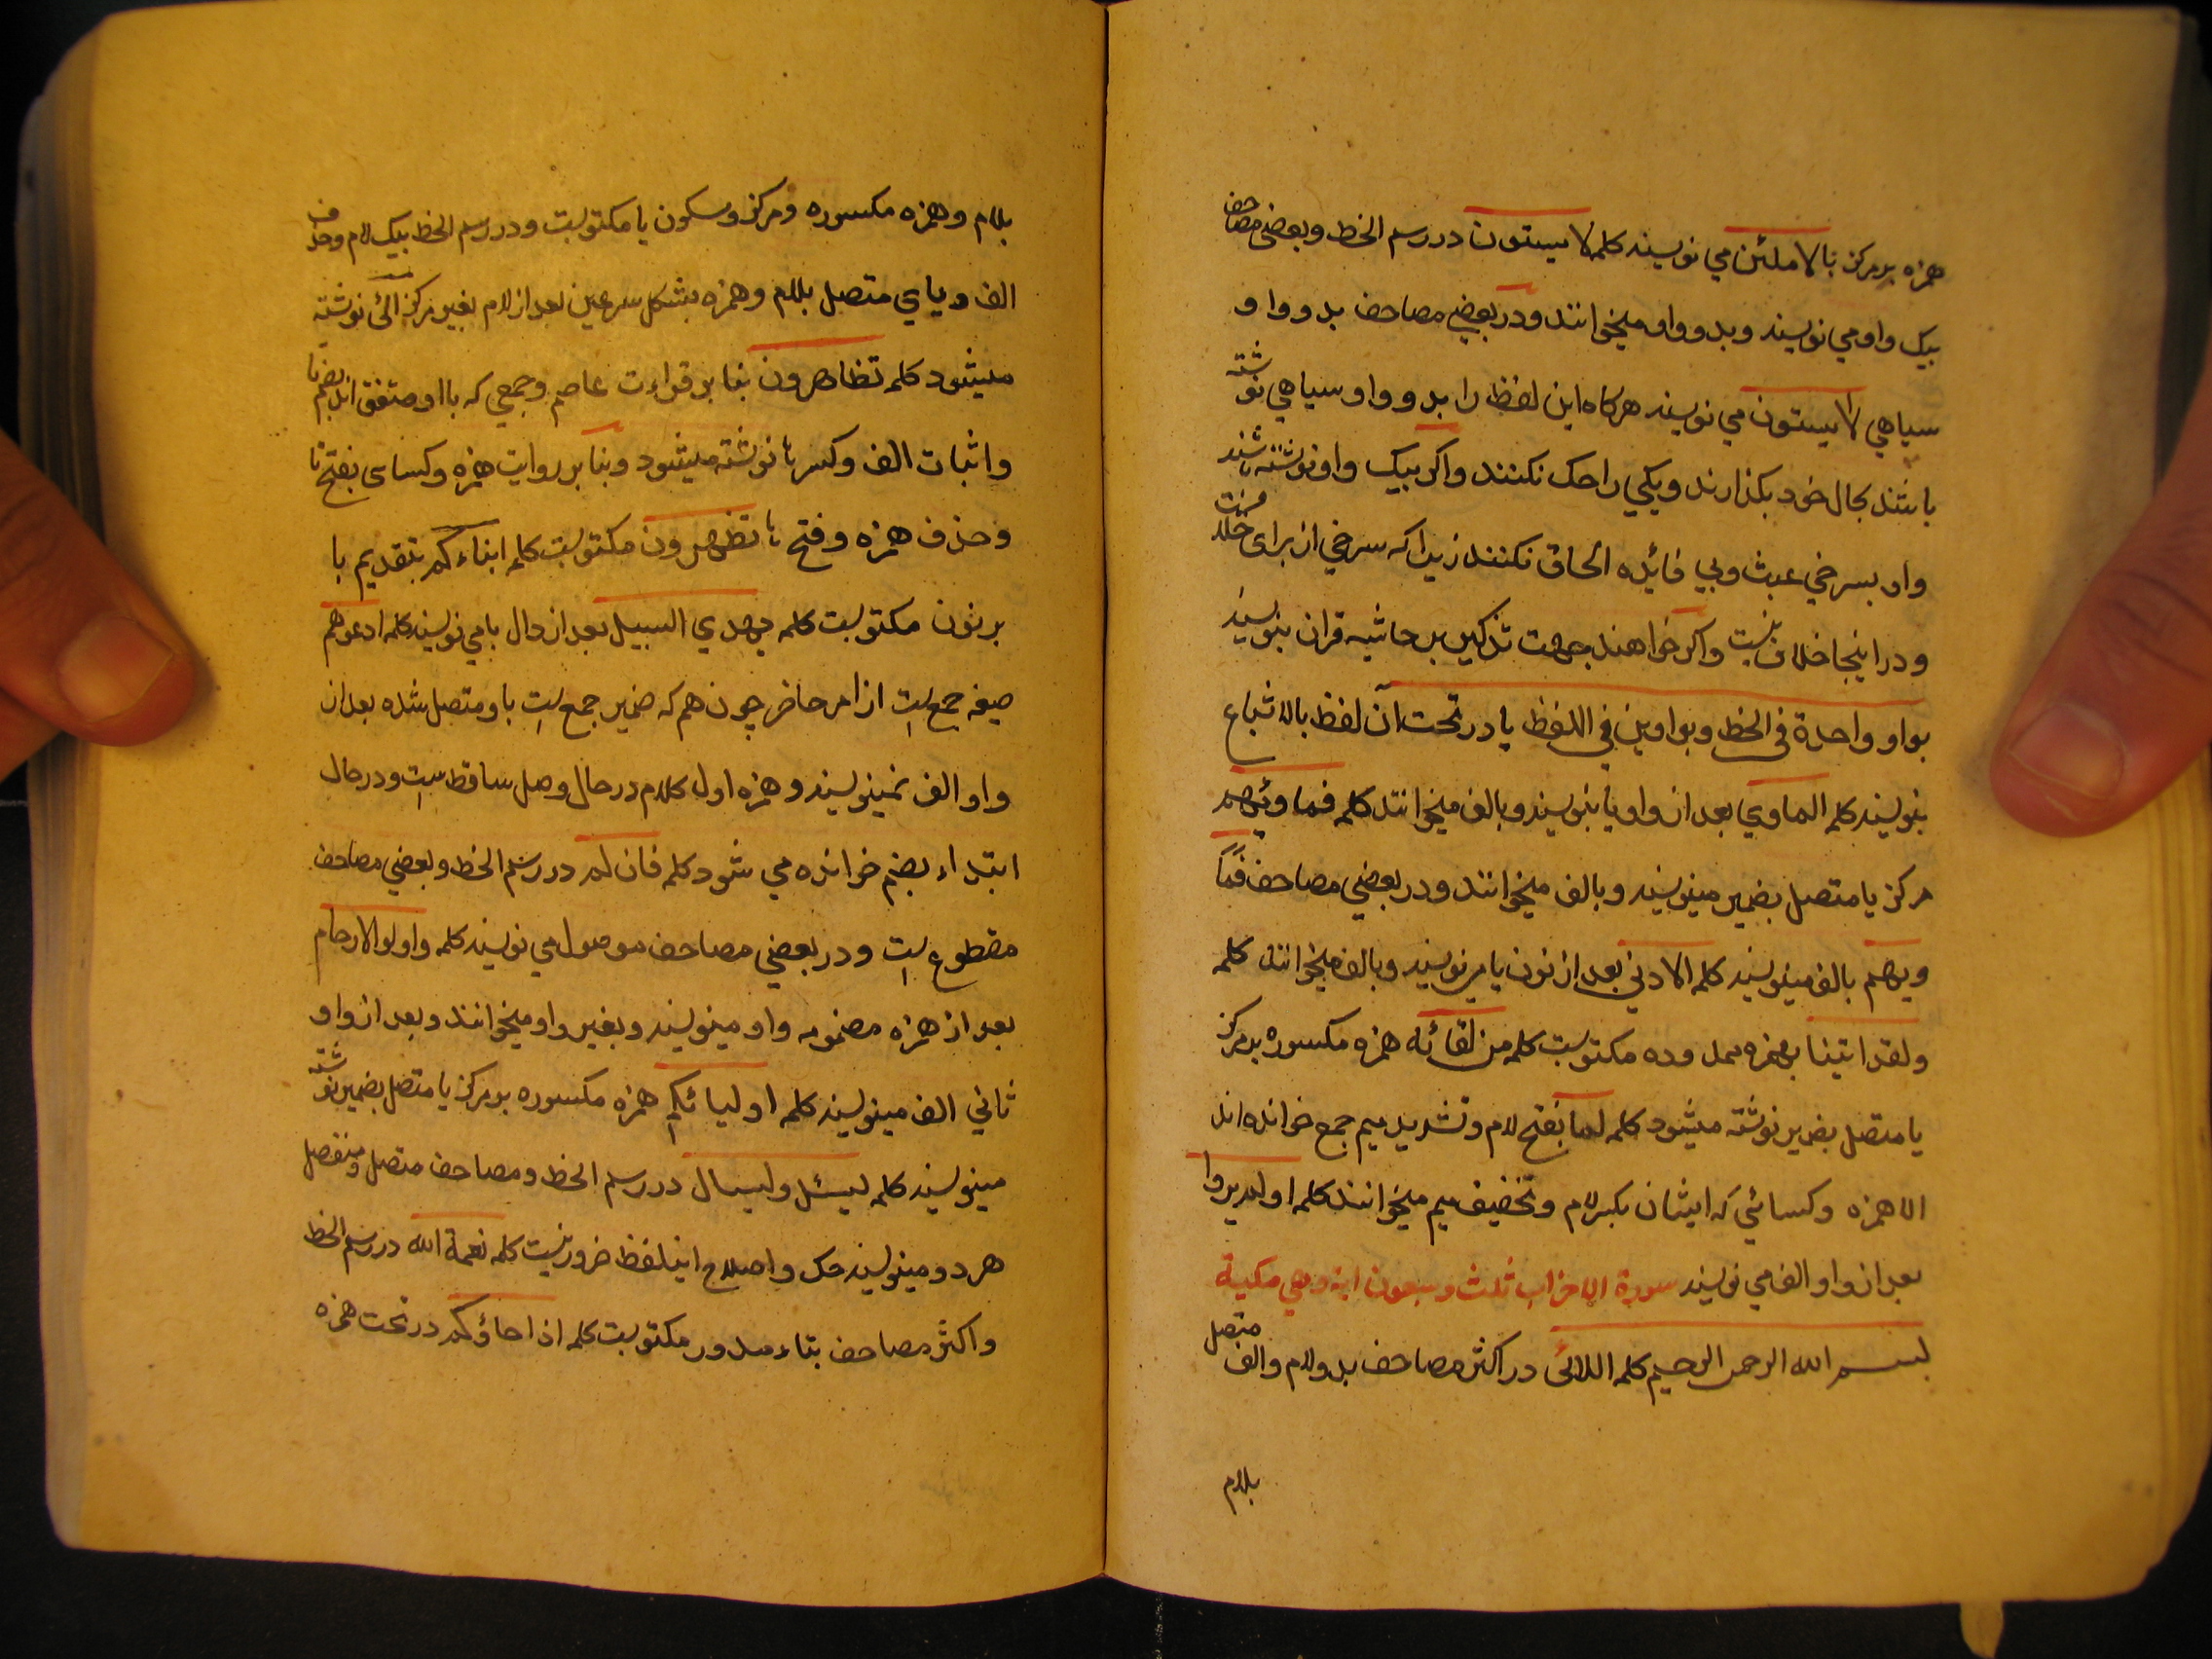 همزه بر مرکز بالاملئن می نویسند کلمه لا یستون در رسم الخط و بعضی مصاحف
بیک واو می نویسند و بدو واو میخوانند و در بعضی مصاحف بدو واو
سیاهی لا یستوون می نویسند هر کاه این لفظ را بدو واو سیاهی نوشته
باشند بحال خود بکذارند و یکی را حک نکنند و اکر بیک واو نوشته باشند
واو بسرخی عبث و بی فائده الحاق نکنند زیرا که سرخی از برای
و در اینجا خلاف نیست و اکر خواهند بجهت تذکیر بر حاشیه قران بنویسند
بواو واحدة فی الخط و بواوین فی اللفظ یا در تحت آن لفظ بالاشباع
بنویسند کلمه الماوی بعد از واو یا بنویسند و بالف میخوانند کلمه فماویٔهم
مرکز یا متصل بضمیر مینویسند و بالف میخوانند و در بعضی مصاحف فما
ویهم بالف مینویسند کلمه الادنی بعد از نون یا می نویسند و بالف میخوانند کلمه
ولقد اتینا بهمزه ممدوده مکتوبست کلمه من لقائه همزه مکسوره بر مرکز
یا متصل بضمیر نوشته میشود کلمه لما بفتح لام و تشدید میم جمع خوانده اند
الا همزه و کسائی که ایشان بکسر لام و تخفیف میم میخوانند کلمه اولم یروا
بعد از واو الف می نویسند سورة الاحزاب ثلث وسبعون ایة وهی مکیة
بسم الله الرحمن الرحیم کلمه اللائی در اکثر مصاحف بدو لام و الف متصل
بلام
بلام و همزه مکسوره و مرکز و سکون یا مکتوبست و در رسم الخط بیک لام و حذف
الف و یای متصل بلام و همزه بشکل سر عین بعد از لام بغیر مرکز الئ نوشته
میشود کلمه تظاهرون بنا بر قراءت عاصم و جمعی که با او متفق اند بضم تا
و اثبات الف و کسر ها نوشته میشود و بنا بر روایت همزه و کسای بفتح تا
و حذف همزه و فتح ها تظهرون مکتوبست کلمه ابناءکم بتقدیم با
بر نون مکتوبست کلمه یهدی السبیل بعد از دال یا می نویسند کلمه ادعوهم
صیغه جمع است از امر حاضر چون هم که ضمیر جمع است باو متصل شده بعد از
واو الف نمینویسند و همزه اول کلام در حال وصل ساقط است و در حال
ابتداء بضم خوانده می شود کلمه فان لم در رسم الخط و بعضی مصاحف
مقطوع است و در بعضی مصاحف موصول می نویسند کلمه واولو الارحام
بعد از همزه مضمومه واو مینویسند و بغیر واو میخوانند و بعد از واو
ثانی الف مینویسند کلمه اولیائکم همزه مکسوره بر مرکز یا متصل بضمیر نوشته
مینویسند کلمه لیسئل و لیسال در رسم الخط و مصاحف متصل و منفصل
هر دو مینویسند حک و اصلاح اینلفظ ضرور نیست کلمه نعمة الله در رسم الخط
و اکثر مصاحف بتاء مدور مکتوبست کلمه اذا جاؤکم در تحت همزه